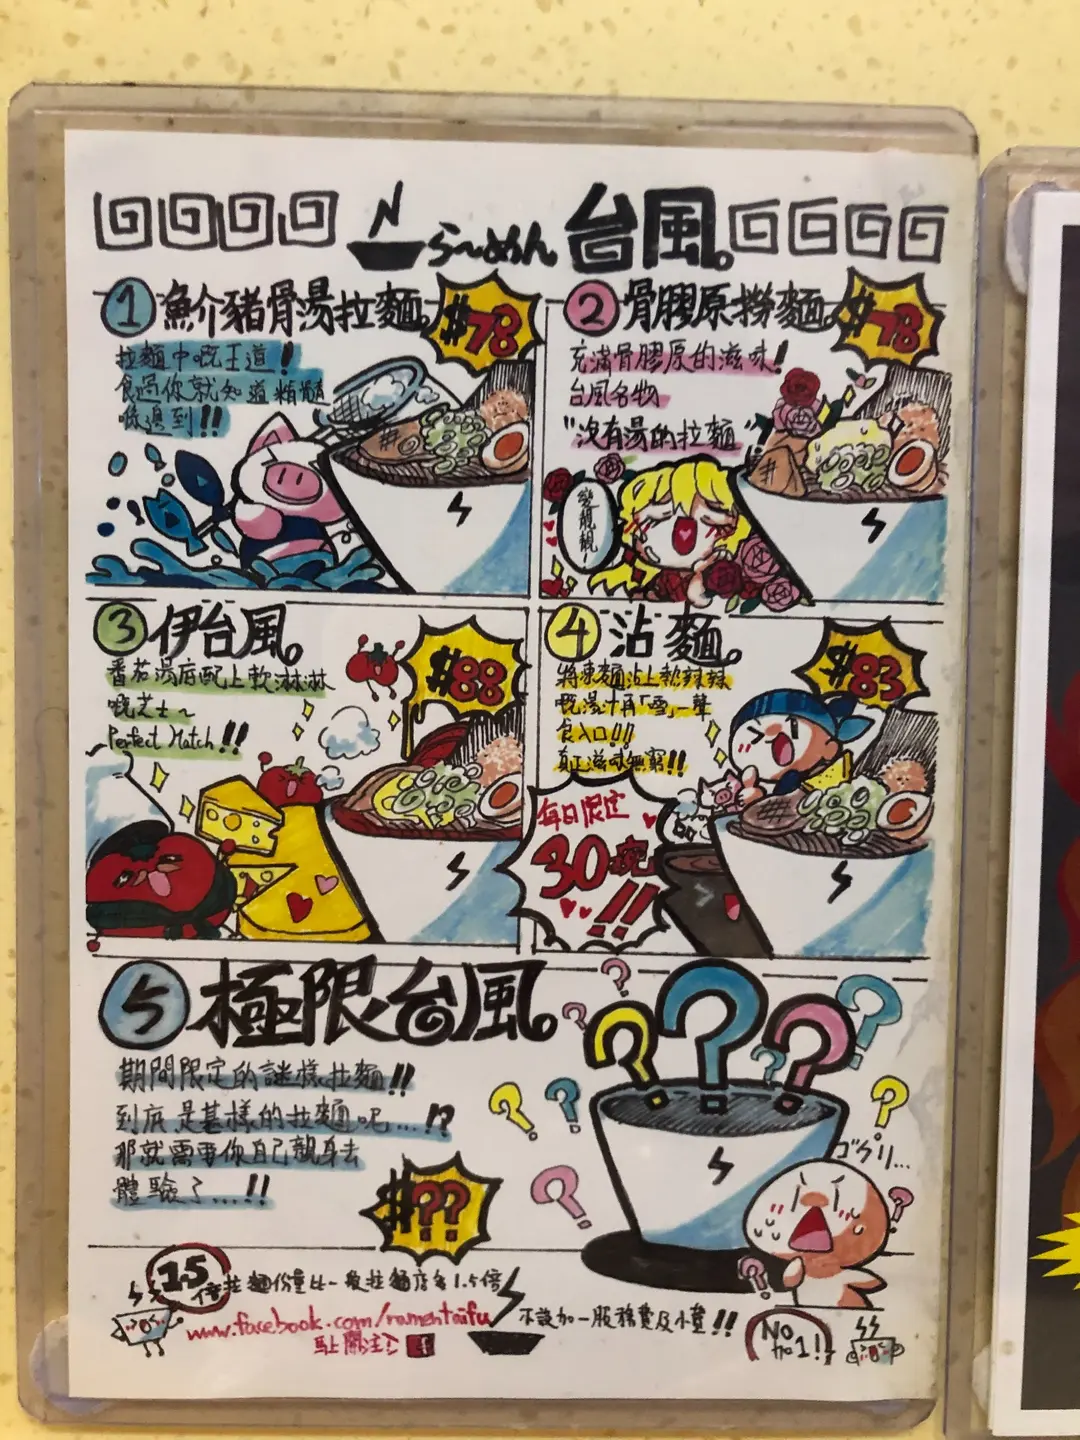 らーめん 台風。
1 魚介豬骨湯拉麵。 $78
拉麵中嘅王道！
食過你就知道精髓
喺邊到!!
2 骨膠原撈麵。 $78
充滿骨膠原的滋味！
台風名物
"沒有湯的拉麵"
變靚靚！
3 伊台風。 $88
番茄湯底配上軟淋淋
嘅芝士～
Perfect Match!!
4 沾麵。 $83
將凍麵沾上熱辣辣
嘅湯汁再「雪」一聲
食入口!!!
真正滋味無窮!!
每日限定
30碗
!!
5 極限台風。
期間限定的謎樣拉麵!!
到底是甚樣的拉麵呢...!?
那就需要你自己親身去
體驗了...!!
$??
ゴクリ...
1.5倍 拉麵份量比一般拉麵店多1.5倍
www.facebook.com/ramentaifu
不設加一服務費及小童!!
No no1!